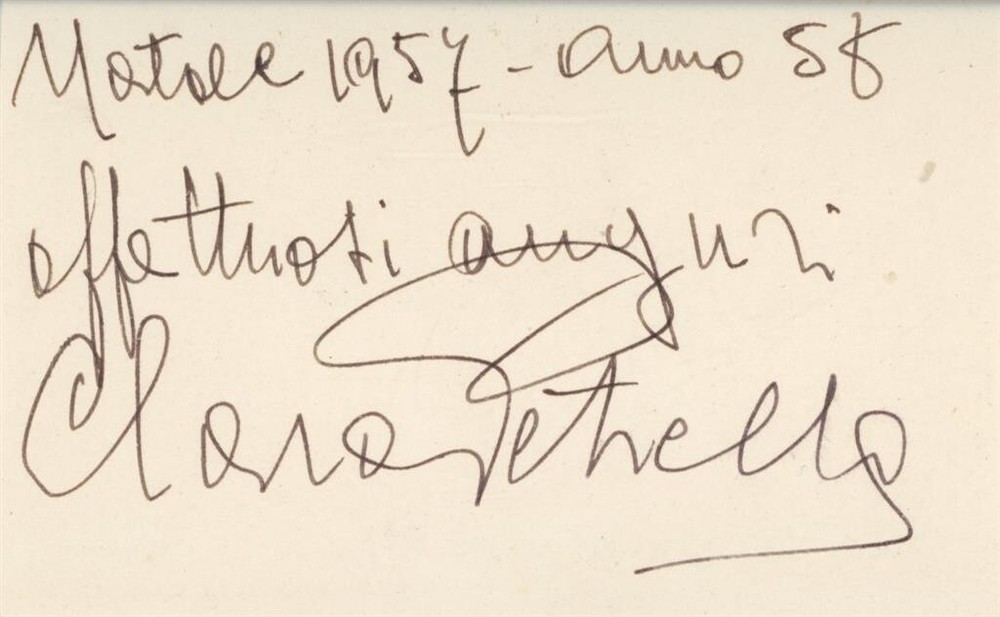 Natale 1957 - anno 58
affettuosi auguri
Clara Petrella